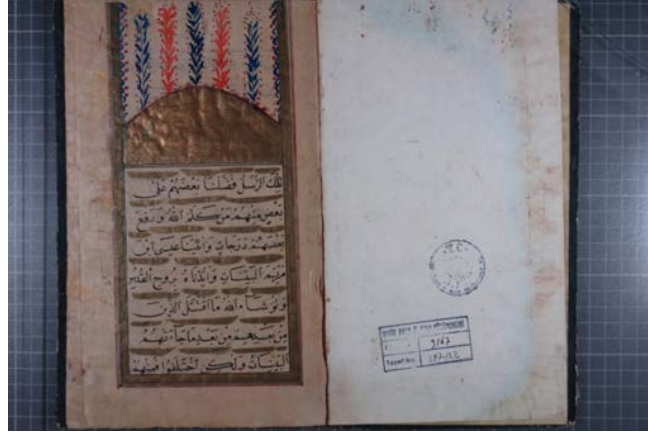 تِلْكَ الرُّسُلُ فَضَّلْنَا بَعْضَهُمْ عَلَى
بَعْضٍ مِنْهُمْ مَنْ كَلَّمَ اللهُ وَرَفَعَ
بَعْضَهُمْ دَرَجَاتٍ وَاٰتَيْنَا عِيسَى ابْنَ
مَرْيَمَ الْبَيِّنَاتِ وَاَيَّدْنَاهُ بِرُوحِ الْقُدُسِ
وَلَوْ شَاءَ اللهُ مَا اقْتَتَلَ الَّذِينَ
مِنْ بَعْدِهِمْ مِنْ بَعْدِ مَا جَاءَتْهُمُ
الْبَيِّنَاتُ وَلٰكِنِ اخْتَلَفُوا فَمِنْهُمْ
T.C.
3167
Tasnif No. 297.122